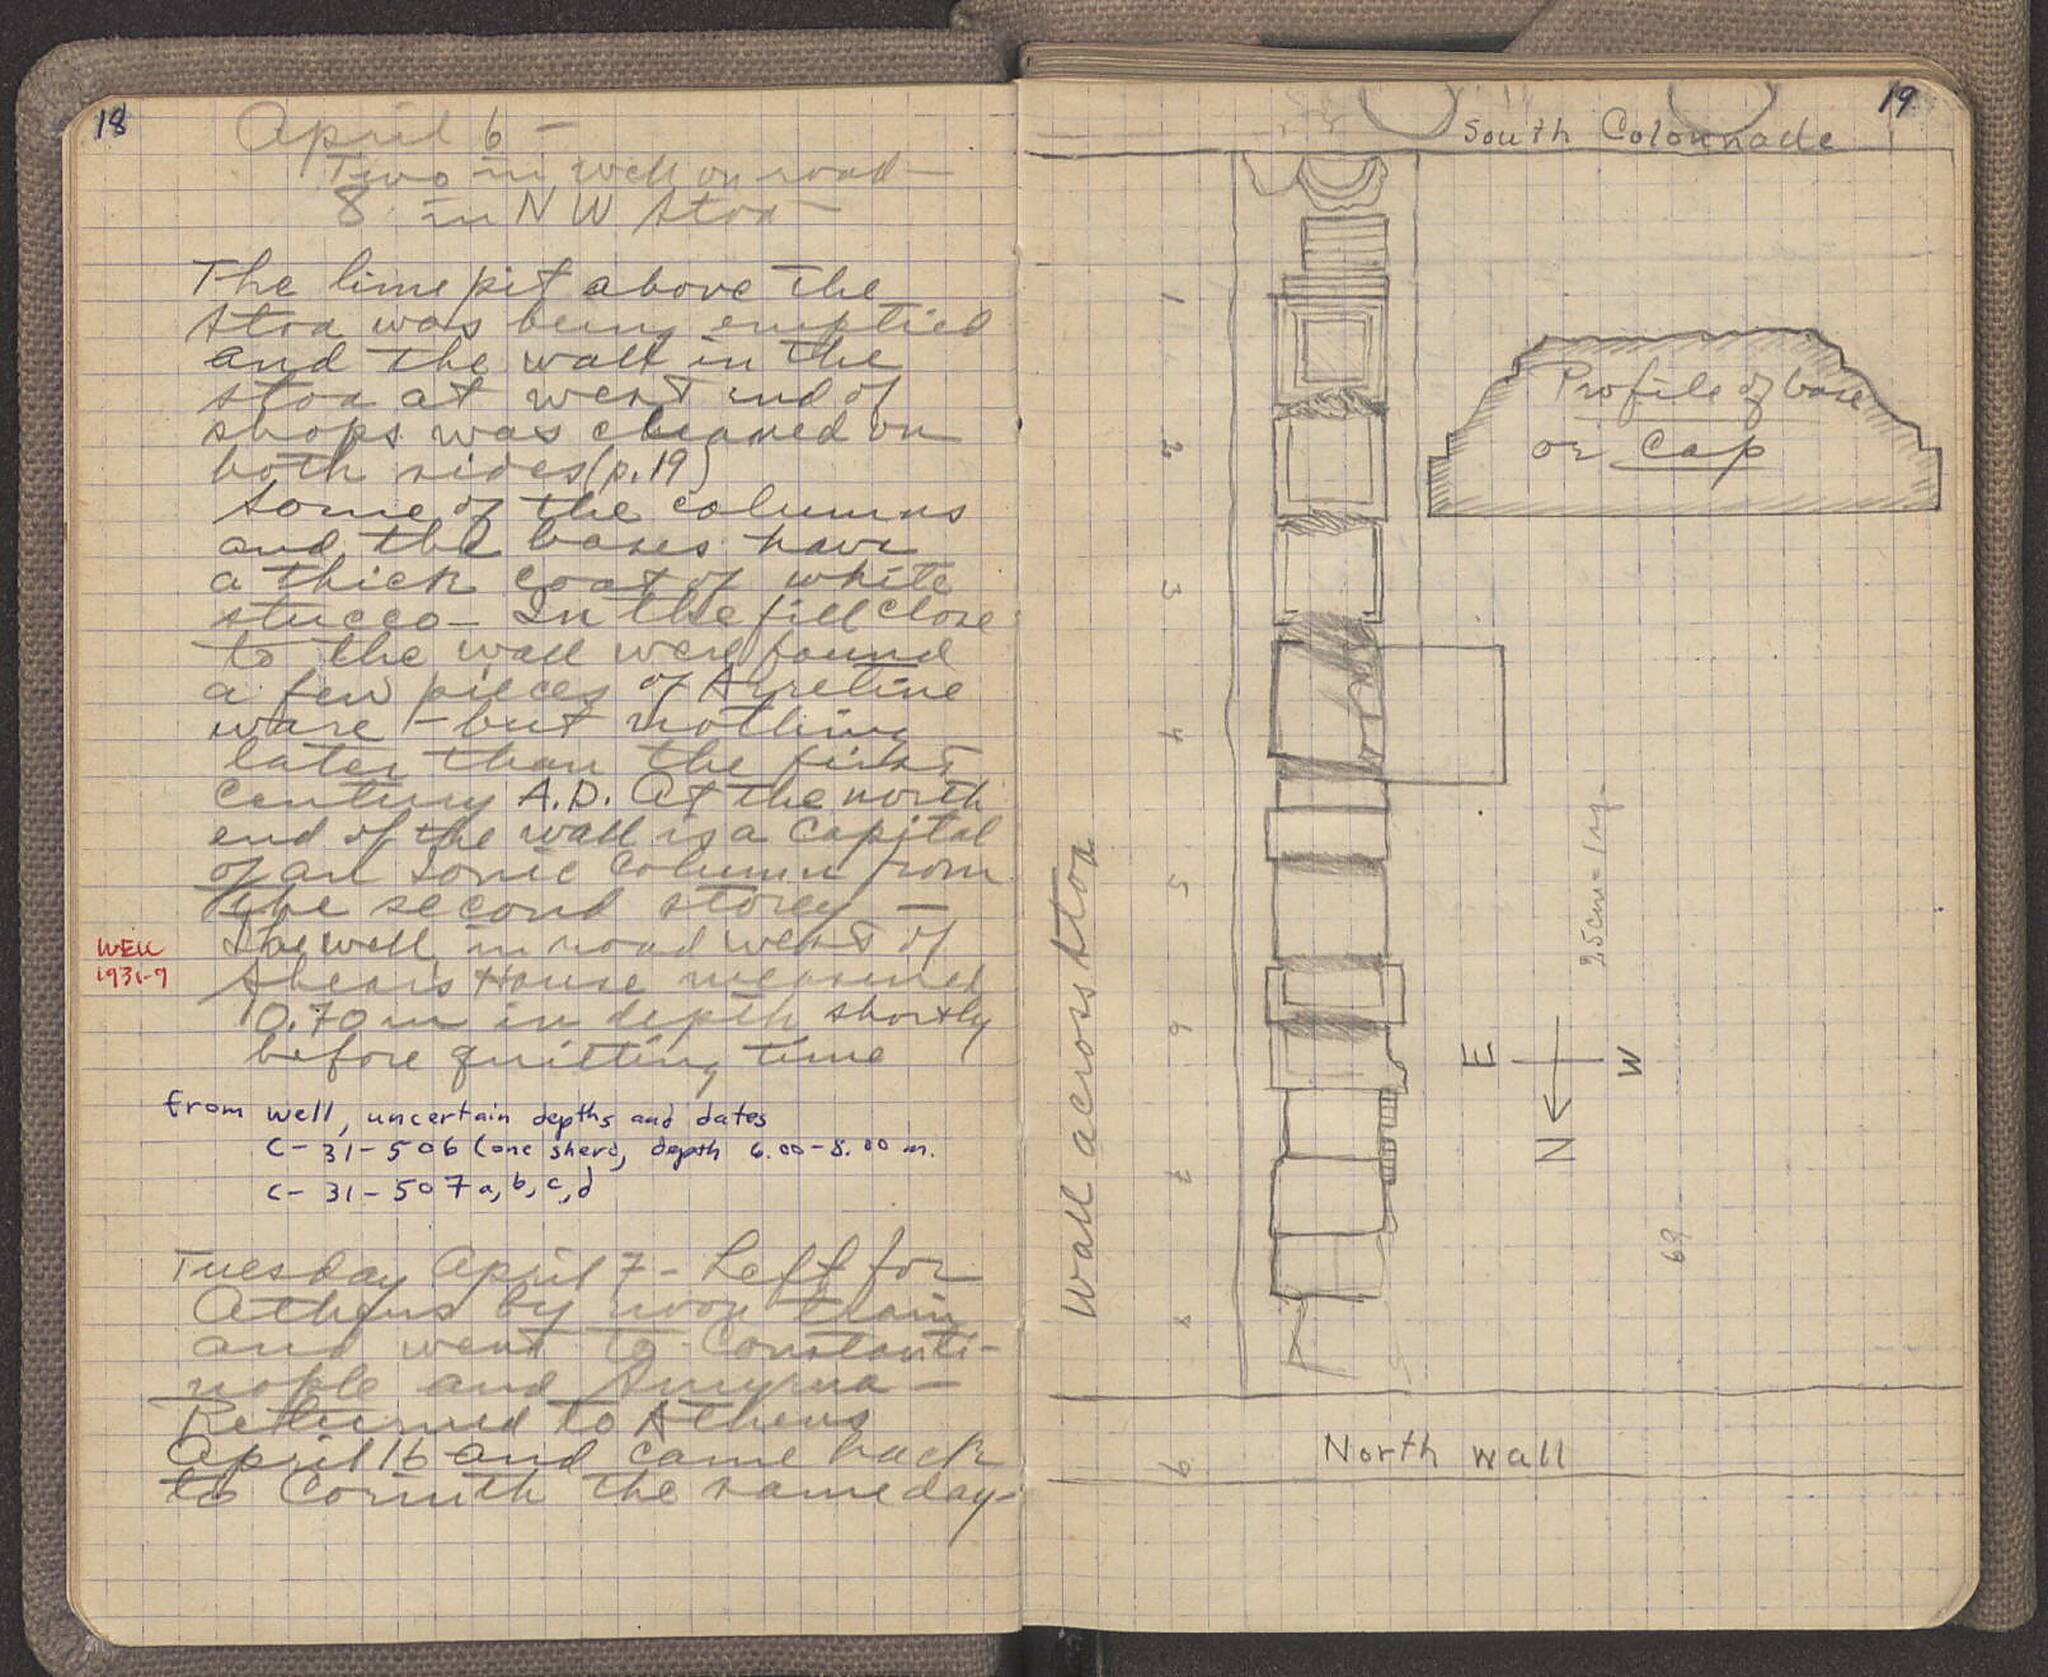 18
April 6 -
Two in well on road -
8 in NW Stoa -
The lime pit above the
stoa was being emptied
and the wall in the
stoa at west end of
shops was cleaned on
both sides (p. 19)
Some of the columns
and the bases have
a thick coat of white
stucco - In the fill close
to the wall were found
a few pieces of Arretine
ware - but nothing
later than the first
century A.D. At the north
end of the wall is a capital
of an Ionic column from
the second storey -
WELL
1931-9
The well in road west of
Shear's House measured
10.70 m in depth shortly
before quitting time
from well, uncertain depths and dates
C-31-506 (one sherd, depth 6.00-8.00 m.
C-31-507 a, b, c, d
Tuesday April 7 - Left for
Athens by noon train
and went to Constanti-
nople and Smyrna -
Returned to Athens
April 16 and came back
to Corinth the same day -
19
South Colonnade
Profile of base
or cap
1
2
3
4
5
6
7
8
9
Wall across stoa
E
W
N
69
North wall